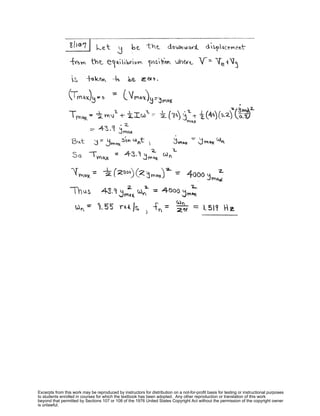 8/197 Let y be the downward displacement
from the equilibrium position where V = Ve + Vg
is taken to be zero.
(Tmax)y=0 = (Vmax)y=ymax
Tmax = ½mv² + ½Iω² = ½(70)ẏ²max + ½(40)(0.2)²(ẏmax/0.3)²
= 43.9 ẏ²max
But y = ymax sin ωnt , ẏmax = ymax ωn
So Tmax = 43.9 y²max ωn²
Vmax = ½(2000)(2ymax)² = 4000 y²max
Thus 43.9 y²max ωn² = 4000 y²max
ωn = 9.55 rad/s , fn = ωn/2π = 1.519 Hz
Excerpts from this work may be reproduced by instructors for distribution on a not-for-profit basis for testing or instructional purposes
to students enrolled in courses for which the textbook has been adopted. Any other reproduction or translation of this work
beyond that permitted by Sections 107 or 108 of the 1976 United States Copyright Act without the permission of the copyright owner
is unlawful.